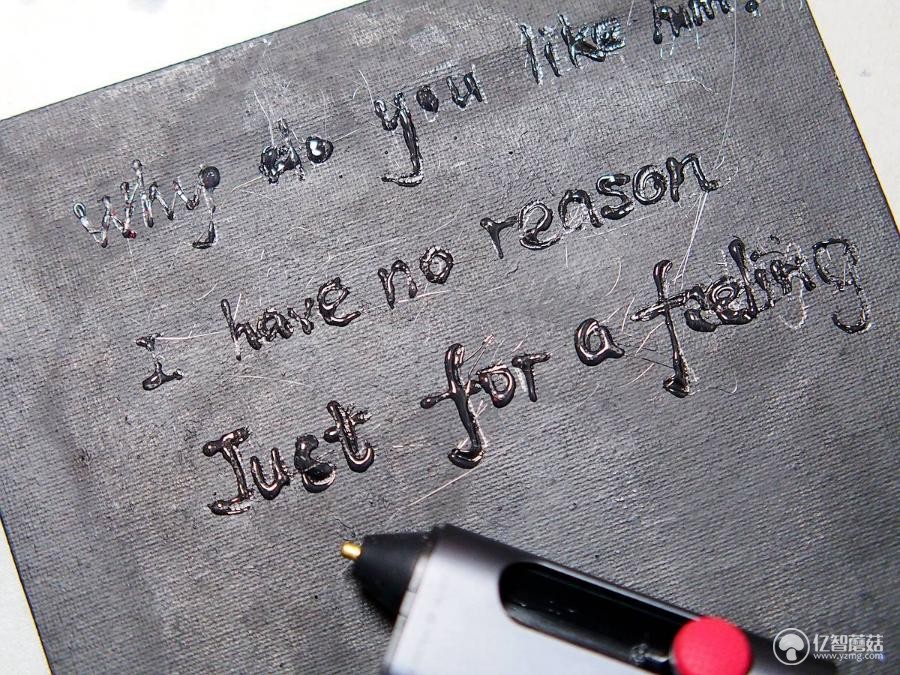 Why do you like him?
I have no reason
Just for a feeling
亿智蘑菇
www.yzmg.com